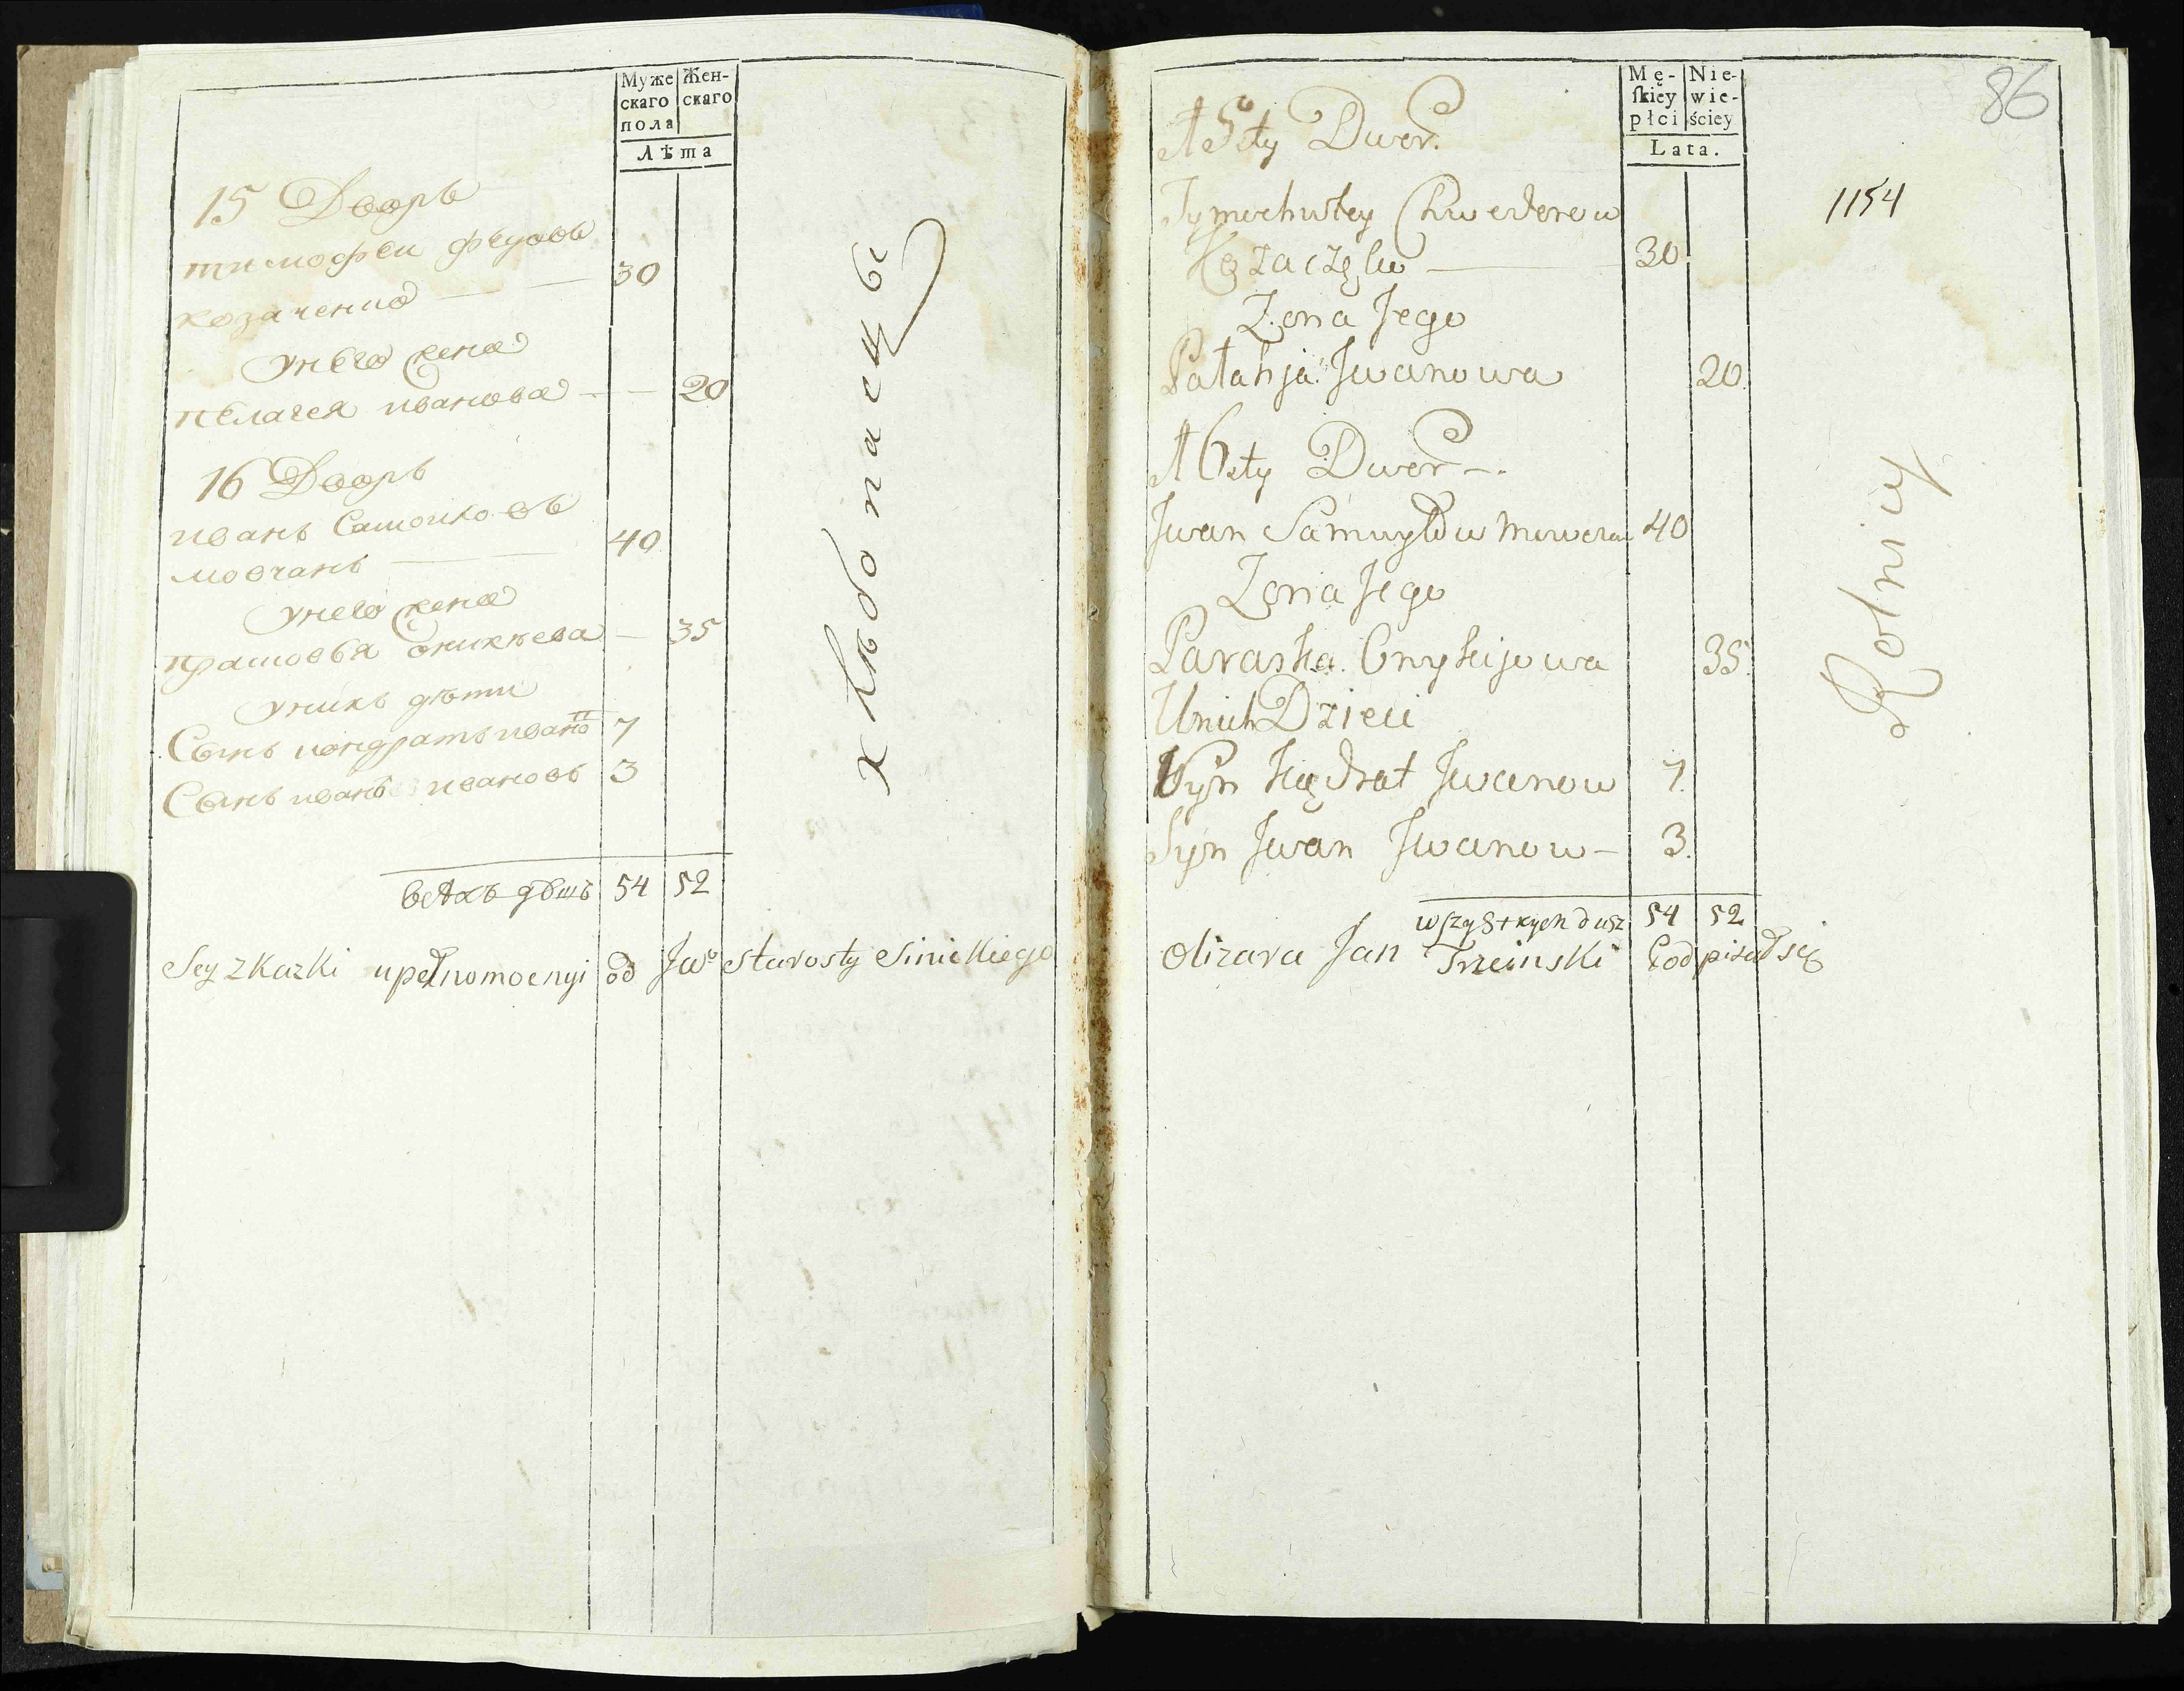 Муже Жен-
скаго скаго
пола
Лѣта
15 Дворъ
тимофеи
козаченко — — 30
Унего жена
пелагея иванова — — 20
16 Дворъ
иванъ Самоиловъ
мовчанъ — 40
Унего жена
прасковья оникѣева — 35
Унихъ дѣти
Сынъ кондратъ ивано 7
Сынъ иванъ ивановъ 3
хлѣбопаецы
всѣхъ дꙋшъ 54 52
Sey zkazki upełnomocnyi od Jwo starosty Sinickiego
86
Mę- Nie-
ſkiey wie-
płci ściey
Lata.
1154
15ty Dwor.
Tymochwtey Chwederow
Kozaczęko — 30
Zona Jego
Pałahja Jwanowa 20
16sty Dwor —.
Jwan Samuyłow Mowczan 40
Zona Jego
Paraska Onykijowa 35.
Unich Dzieci
Syn Kądrat Jwanow 7.
Syn Jwan Jwanow — 3.
Rolnicy
wſzystkych dusz 54 52
Olizara Jan Trzcinski Podpisał się